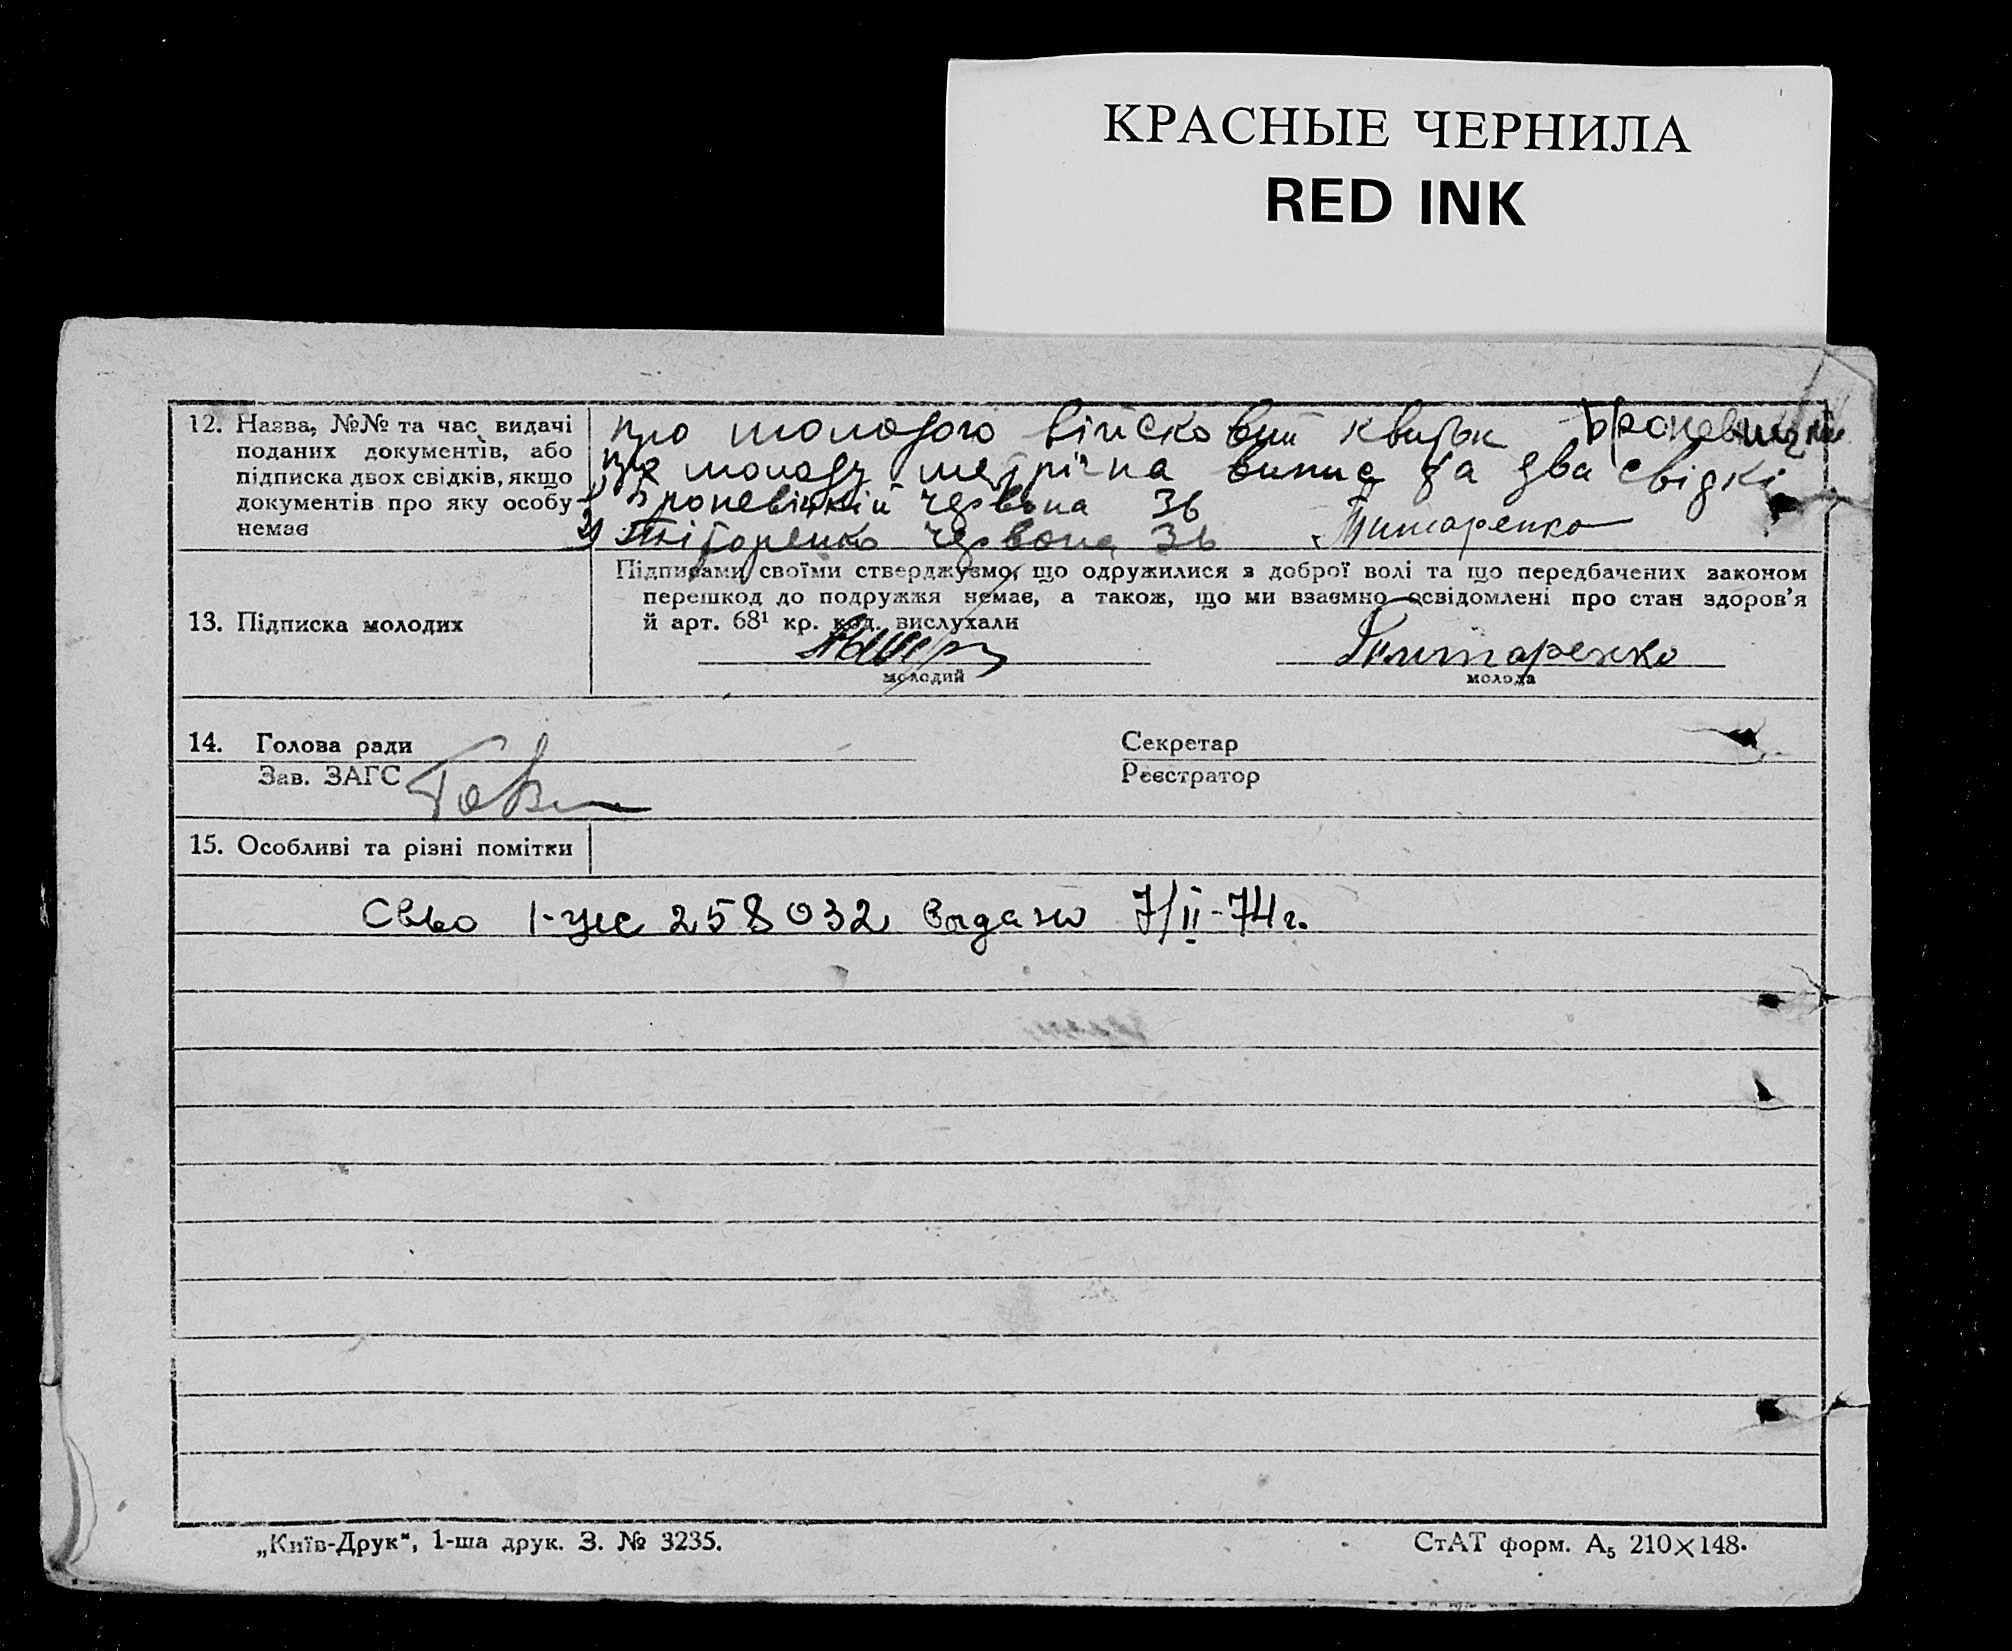 КРАСНЫЕ ЧЕРНИЛА
RED INK
12. Назва, №№ та час видачі
поданих документів, або
підписка двох свідків, якщо
документів про яку особу
немає
про молодого війсковий квиток
про молоду метрічна випис та два свідкі
1) Броневіцкій червона 36
2) Тітаренко червона 36 Титаренко
13. Підписка молодих
Підписами своїми стверджуємо, що одружилися з доброї волі та що передбачених законом
перешкод до подружжя немає, а також, що ми взаємно освідомлені про стан здоров'я
й арт. 68¹ кр. код. вислухали
Титаренко
молодий молода
14. Голова ради Секретар
Зав. ЗАГС Реєстратор
15. Особливі та різні помітки
Св-во 1-УК 258032 выдано 7/II-74г.
„Київ-Друк", 1-ша друк. З. № 3235. СтАТ форм. А₅ 210×148.